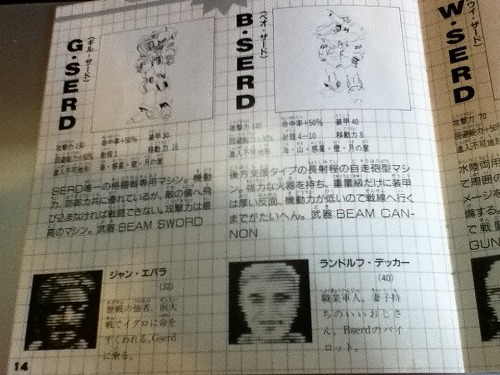 G・SERD
(ギル・ザード)
攻撃力 190
命中率+50%
装甲 30
回避能力+50%
射程 1
移動力 16
進入不可地形
海・惑星・壁・月の崖
SERD唯一の格闘戦専用マシン。機動
力、防御力共に優れているが、敵の懐へ飛
び込まなければ戦闘できない。攻撃力は最
高のマシン。武器:BEAM SWORD
ジャン・エバラ
(32)
歴戦の強者。前大
戦でイグロに命を
すくわれる。Gserd
に乗る。
B・SERD
(ベオ・ザード)
攻撃力 140
命中率+50%
装甲 40
射程 4-10
移動力 8
進入不可地形
海・山・惑星・壁・月の崖
後方支援タイプの長射程の自走砲型マシ
ン。強力な火器を持ち、重量級だけに装甲
は厚い反面、機動力が低いので戦線へ行く
までがたいへん。武器:BEAM CAN-
NON
ランドルフ・テッカー
(40)
職業軍人。妻子持
ちのいいおじさ
ん。Bserdのパイ
ロット。
W・SERD
攻撃力 70
回避能力
進入不可
水陸両
て周囲の
メージ
備する
で戦
GUN
14